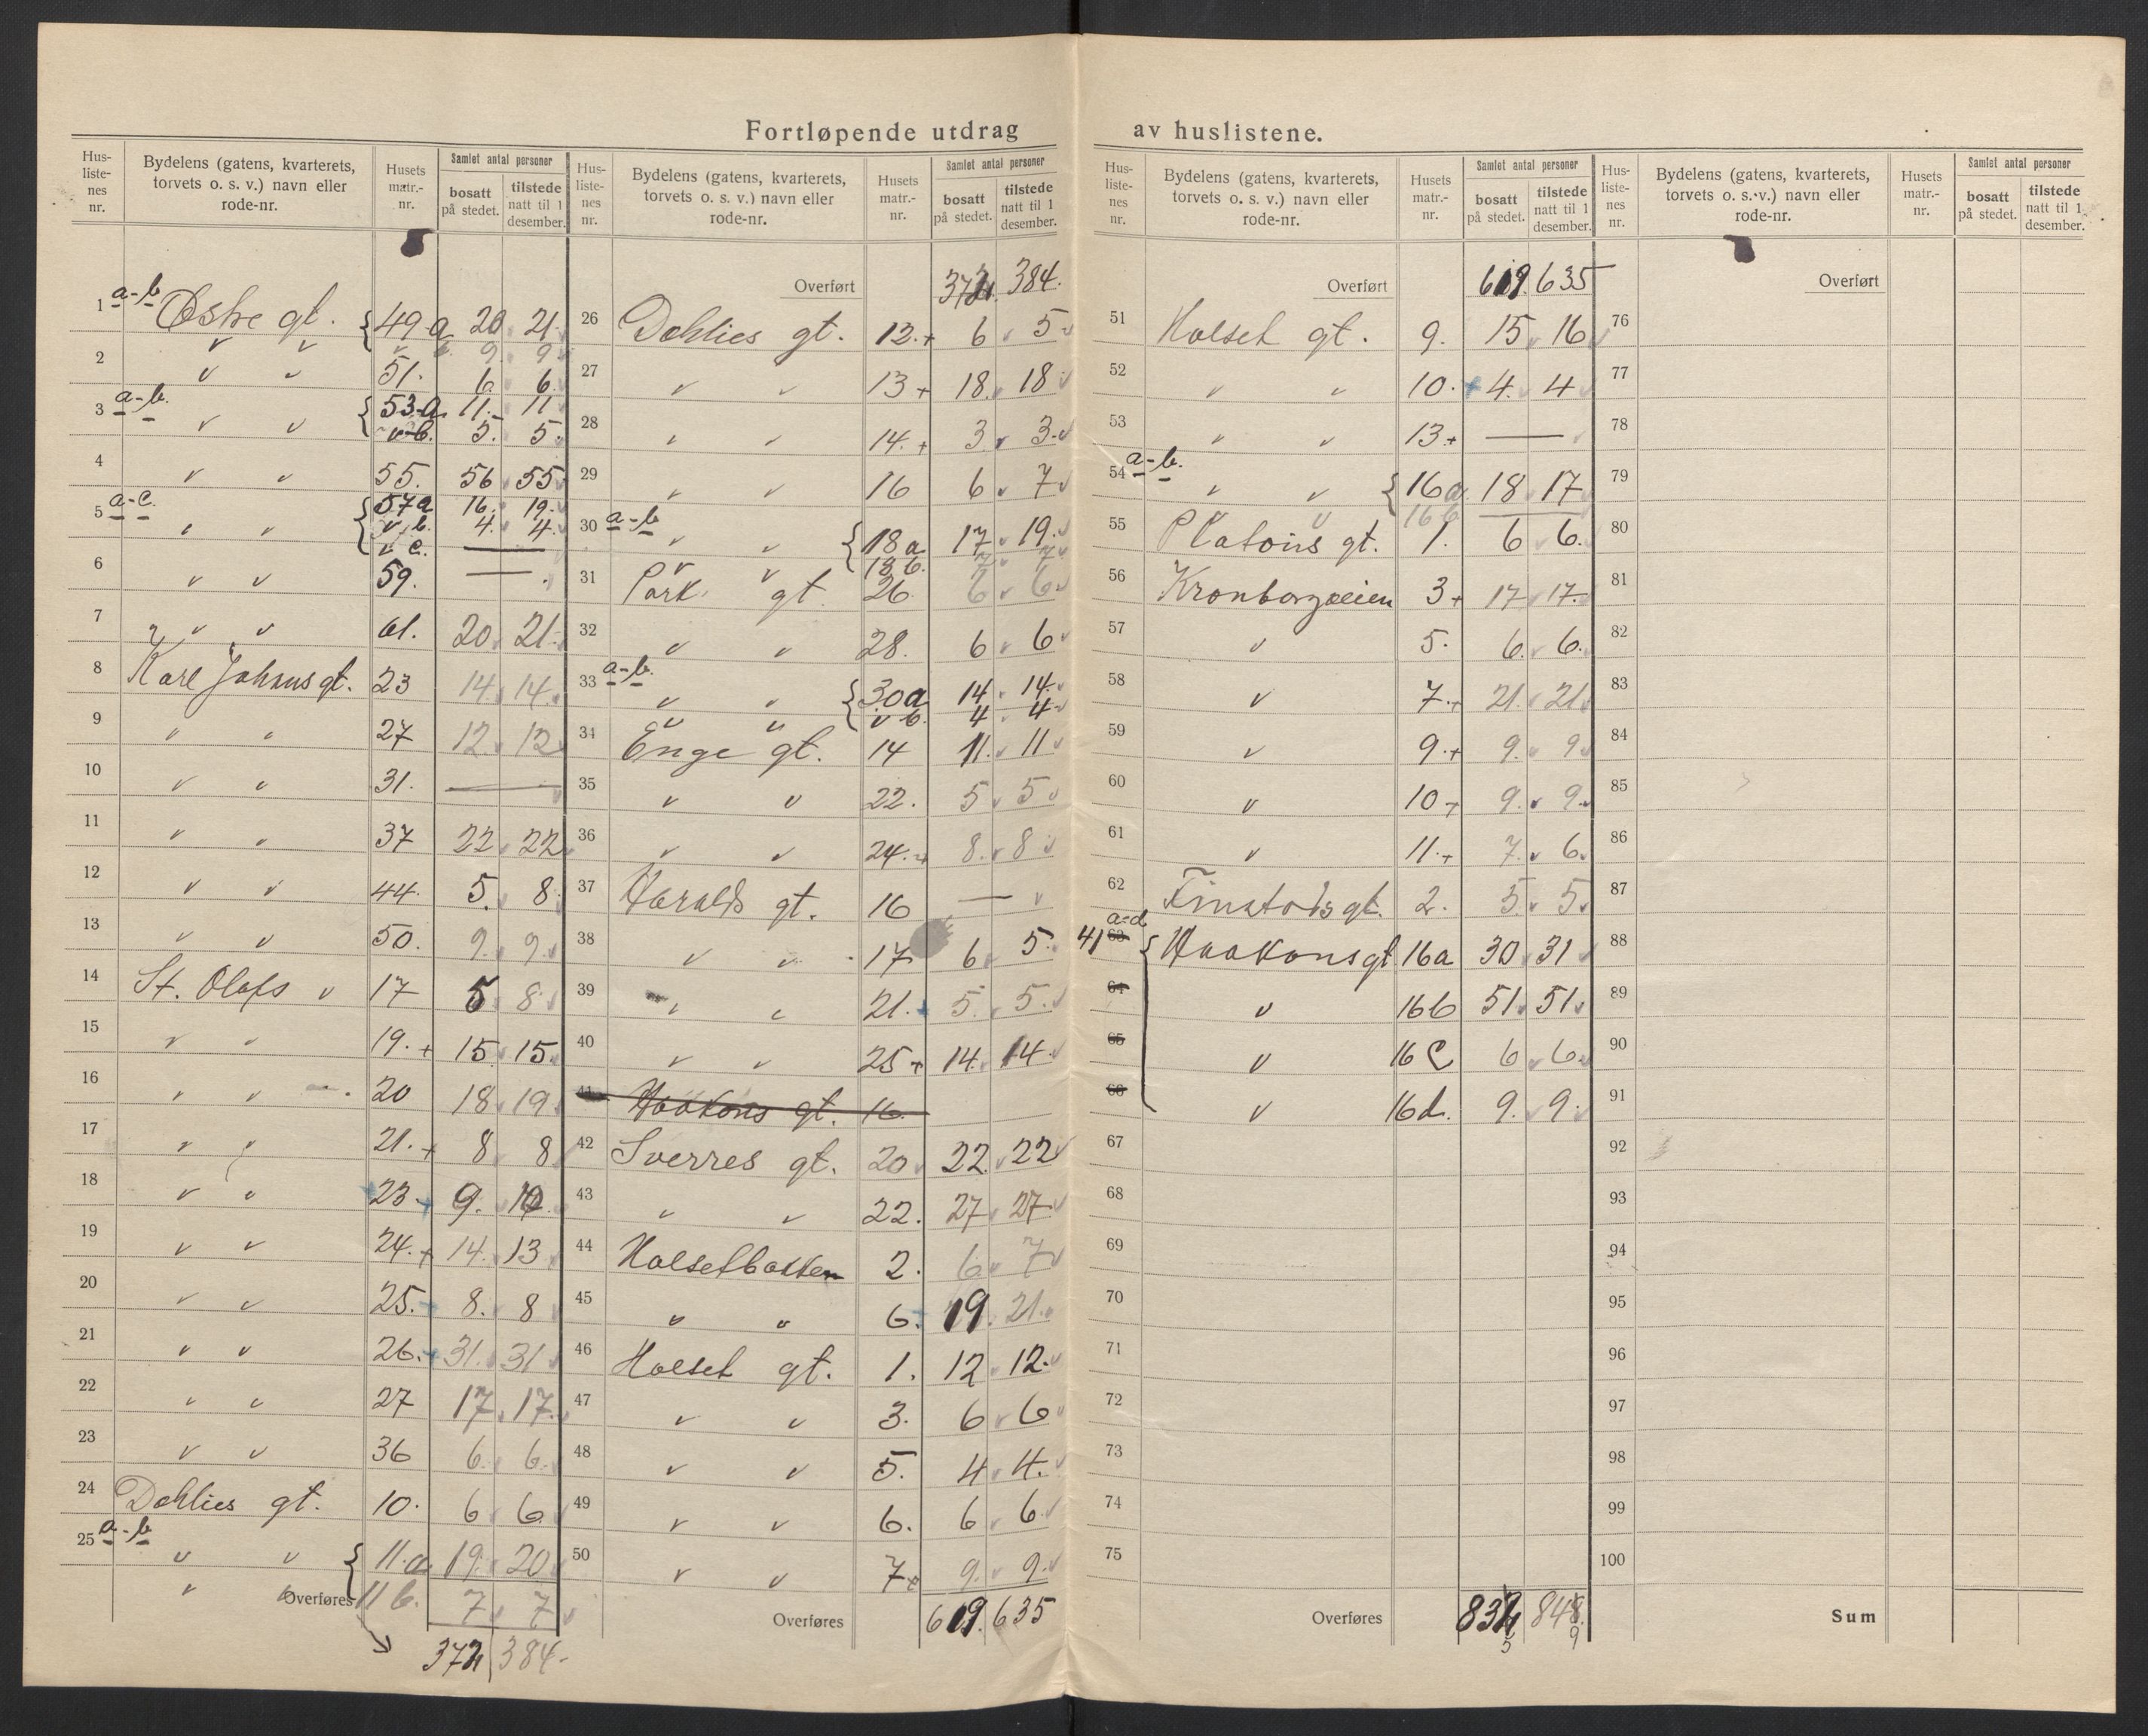 Fortløpende utdrag av huslistene.
Hus-listenes nr. | Bydelens (gatens, kvarterets, torvets o. s. v.) navn eller rode-nr. | Husets matr.-nr. | Samlet antal personer bosatt på stedet. | tilstede natt til 1 desember.
1 a-b Østre gt. 49 a 20 21
" " " b. 9. 9
2 " " 51. 6 6
3 a-b. " " 53 a 11. 11
" b. 5. 5.
4 " " 55. 56 55
5 a-c. " " 57a 16. 19.
" b. 4. 4.
" c. —
6 " " 59. —
7 " " 61. 20 21
8 Karl Johans gt. 23 14. 14.
9 " " 27 12. 12
10 " " 31. —
11 " " 37 22 22
12 " " 44. 5. 8
13 " " 50. 9. 9.
14 St. Olafs " 17 5 8
15 " " 19. + 15 15
16 " " 20 18 19
17 " " 21. + 8 8
18 " " 23 + 9. 10
19 " " 24. + 14. 13
20 " " 25. 8. 8
21 " " 26. 31. 31
22 " " 27 17 17.
23 " " 36 6. 6.
24 Dahlies gt. 10. 6 6
25 a-b " " 11.a 19. 20
" " 11 b. 7 7
Overføres 372 384
Hus-listenes nr. | Bydelens (gatens, kvarterets, torvets o. s. v.) navn eller rode-nr. | Husets matr.-nr. | Samlet antal personer bosatt på stedet. | tilstede natt til 1 desember.
Overført 372 384.
26 Dahlies gt. 12. + 6 5
27 " " 13 + 18. 18
28 " " 14. + 3 3
29 " " 16 6 7
30 a-b " " 18 a 17 19.
" " 18 b. 7 7
31 Park gt 26 6 6
32 " " 28. 6 6
33 a-b. " " 30a 14 14.
" " " b. 4 4
34 Enge gt. 14 11. 11
35 " " 22. 5 5
36 " " 24. + 8. 8
37 Haralds gt. 16 —
38 " " 17 6 5.
39 " " 21. 5. 5.
40 " " 25 + 14. 14.
41 Haakons gt. 16.
42 Sverres gt. 20 22. 22
43 " " 22. 27 27
44 Holsetbakken 2. 6 7
45 " " 6. 19. 21.
46 Holset gt. 1. 12 12.
47 " " 3. 6 6
48 " " 5. 4 4.
49 " " 6. 6 6
50 " " 7 + 9. 9.
Overføres 619. 635
Hus-listenes nr. | Bydelens (gatens, kvarterets, torvets o. s. v.) navn eller rode-nr. | Husets matr.-nr. | Samlet antal personer bosatt på stedet. | tilstede natt til 1 desember.
Overført 619. 635
51 Holset gt. 9. 15 16
52 " " 10. 4. 4
53 " " 13 + —
54 a-b. " " 16a 18 17
" 16b —
55 Platous gt. 1. 6 6.
56 Kronborgveien 3 + 17 17.
57 " 5. 6. 6.
58 " 7. + 21. 21
59 " 9. + 9. 9
60 " 10 + 9. 9.
61 " 11. + 7. 6.
62 Finstads gt. 2. 5. 5
41 a-d 63 Haakons gt 16a 30 31
64 " 16b 51. 51
65 " 16 c 6 6
66 " 16d. 9. 9.
67
68
69
70
71
72
73
74
75
Overføres 834 848
5 9
Hus-listenes nr. | Bydelens (gatens, kvarterets, torvets o. s. v.) navn eller rode-nr. | Husets matr.-nr. | Samlet antal personer bosatt på stedet. | tilstede natt til 1 desember.
Overført
76
77
78
79
80
81
82
83
84
85
86
87
88
89
90
91
92
93
94
95
96
97
98
99
100
Sum